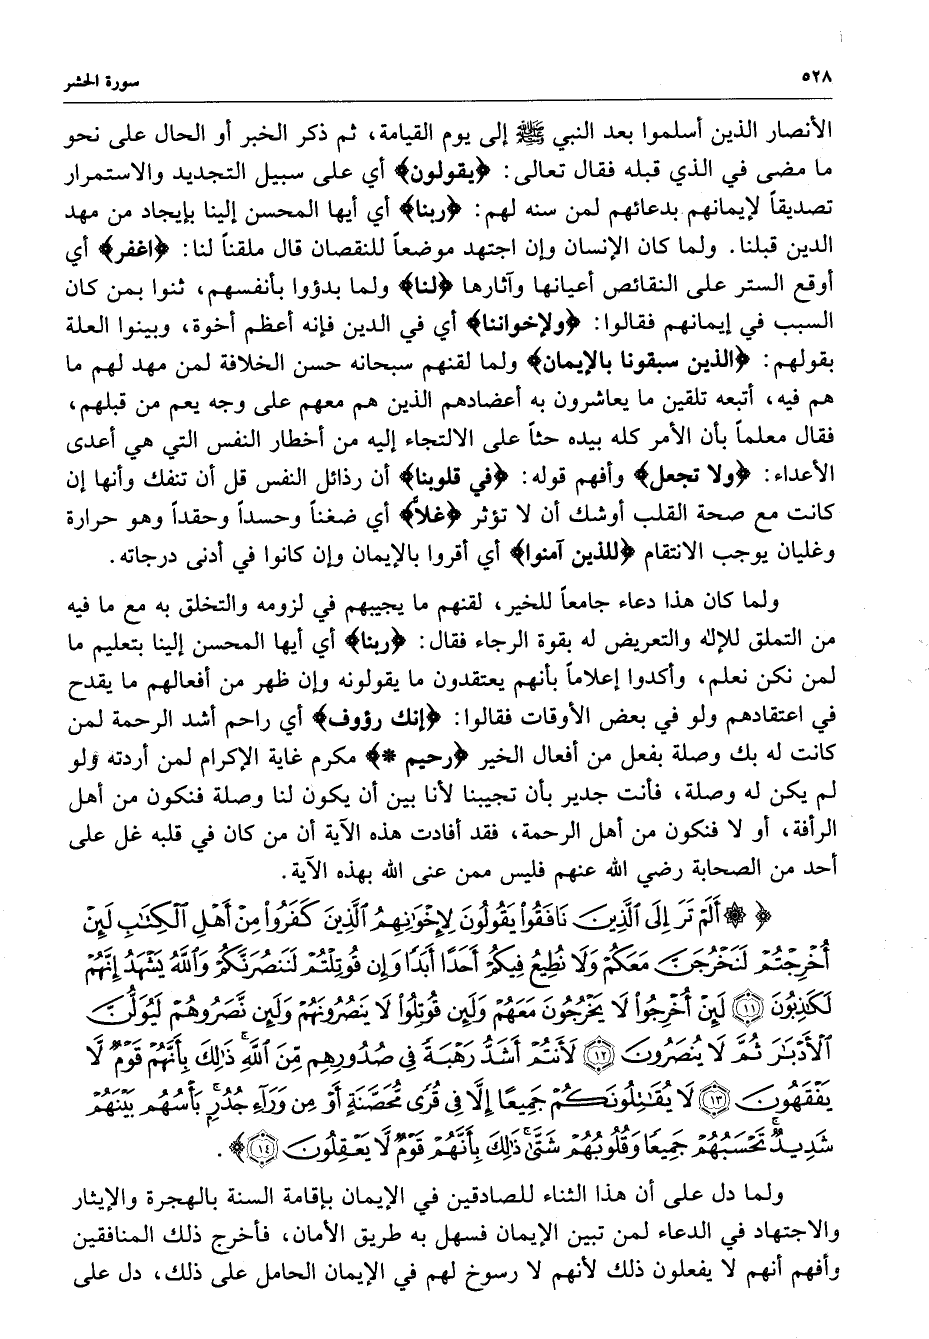 ٥٢٨ سورة الحشر
الأنصار الذين أسلموا بعد النبي ﷺ إلى يوم القيامة، ثم ذكر الخبر أو الحال على نحو
ما مضى في الذي قبله فقال تعالى: ﴿يقولون﴾ أي على سبيل التجديد والاستمرار
تصديقاً لإيمانهم بدعائهم لمن سنه لهم: ﴿ربنا﴾ أي أيها المحسن إلينا بإيجاد من مهد
الدين قبلنا. ولما كان الإنسان وإن اجتهد موضعاً للنقصان قال ملقناً لنا: ﴿اغفر﴾ أي
أوقع الستر على النقائص أعيانها وآثارها ﴿لنا﴾ ولما بدؤوا بأنفسهم، ثنوا بمن كان
السبب في إيمانهم فقالوا: ﴿ولإخواننا﴾ أي في الدين فإنه أعظم أخوة، وبينوا العلة
بقولهم: ﴿الذين سبقونا بالإيمان﴾ ولما لقنهم سبحانه حسن الخلافة لمن مهد لهم ما
هم فيه، أتبعه تلقين ما يعاشرون به أعضادهم الذين هم معهم على وجه يعم من قبلهم،
فقال معلماً بأن الأمر كله بيده حثاً على الالتجاء إليه من أخطار النفس التي هي أعدى
الأعداء: ﴿ولا تجعل﴾ وأفهم قوله: ﴿في قلوبنا﴾ أن رذائل النفس قل أن تنفك وأنها إن
كانت مع صحة القلب أوشك أن لا تؤثر ﴿غلاً﴾ أي ضغناً وحسداً وحقداً وهو حرارة
وغليان يوجب الانتقام ﴿للذين آمنوا﴾ أي أقروا بالإيمان وإن كانوا في أدنى درجاته.
ولما كان هذا دعاء جامعاً للخير، لقنهم ما يجيبهم في لزومه والتخلق به مع ما فيه
من التملق للإله والتعريض له بقوة الرجاء فقال: ﴿ربنا﴾ أي أيها المحسن إلينا بتعليم ما
لمن نكن نعلم، وأكدوا إعلاماً بأنهم يعتقدون ما يقولونه وإن ظهر من أفعالهم ما يقدح
في اعتقادهم ولو في بعض الأوقات فقالوا: ﴿إنك رؤوف﴾ أي راحم أشد الرحمة لمن
كانت له بك وصلة بفعل من أفعال الخير ﴿رحيم *﴾ مكرم غاية الإكرام لمن أردته ولو
لم يكن له وصلة، فأنت جدير بأن تجيبنا لأنا بين أن يكون لنا وصلة فنكون من أهل
الرأفة، أو لا فنكون من أهل الرحمة، فقد أفادت هذه الآية أن من كان في قلبه غل على
أحد من الصحابة رضي الله عنهم فليس ممن عنى الله بهذه الآية.
﴿ ۞ أَلَمْ تَرَ إِلَى ٱلَّذِينَ نَافَقُوا۟ يَقُولُونَ لِإِخْوَٰنِهِمُ ٱلَّذِينَ كَفَرُوا۟ مِنْ أَهْلِ ٱلْكِتَٰبِ لَئِنْ
أُخْرِجْتُمْ لَنَخْرُجَنَّ مَعَكُمْ وَلَا نُطِيعُ فِيكُمْ أَحَدًا أَبَدًا وَإِن قُوتِلْتُمْ لَنَنصُرَنَّكُمْ وَٱللَّهُ يَشْهَدُ إِنَّهُمْ
لَكَٰذِبُونَ ۝١١ لَئِنْ أُخْرِجُوا۟ لَا يَخْرُجُونَ مَعَهُمْ وَلَئِن قُوتِلُوا۟ لَا يَنصُرُونَهُمْ وَلَئِن نَّصَرُوهُمْ لَيُوَلُّنَّ
ٱلْأَدْبَٰرَ ثُمَّ لَا يُنصَرُونَ ۝١٢ لَأَنتُمْ أَشَدُّ رَهْبَةً فِى صُدُورِهِم مِّنَ ٱللَّهِ ۚ ذَٰلِكَ بِأَنَّهُمْ قَوْمٌ لَّا
يَفْقَهُونَ ۝١٣ لَا يُقَٰتِلُونَكُمْ جَمِيعًا إِلَّا فِى قُرًى مُّحَصَّنَةٍ أَوْ مِن وَرَآءِ جُدُرٍۭ ۚ بَأْسُهُم بَيْنَهُمْ
شَدِيدٌ ۚ تَحْسَبُهُمْ جَمِيعًا وَقُلُوبُهُمْ شَتَّىٰ ۚ ذَٰلِكَ بِأَنَّهُمْ قَوْمٌ لَّا يَعْقِلُونَ ۝١٤﴾.
ولما دل على أن هذا الثناء للصادقين في الإيمان بإقامة السنة بالهجرة والإيثار
والاجتهاد في الدعاء لمن تبين الإيمان فسهل به طريق الأمان، فأخرج ذلك المنافقين
وأفهم أنهم لا يفعلون ذلك لأنهم لا رسوخ لهم في الإيمان الحامل على ذلك، دل على